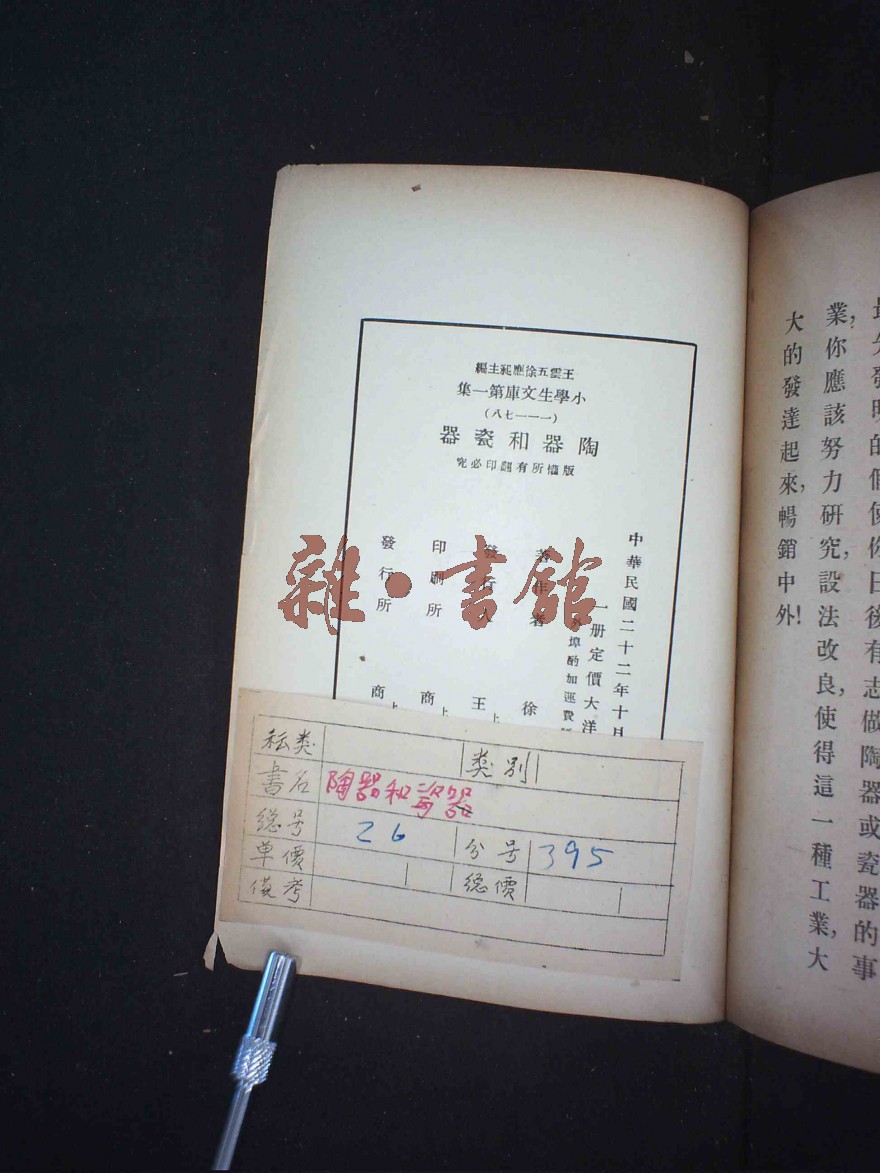 業，你應該努力研究，設法改良，使得這一種工業，大
大的發達起來，暢銷中外！
王雲五徐應昶主編
小學生文庫第一集
（一——七八）
陶器和瓷器
版權所有翻印必究
中華民國二十二年十月
一册定價大洋
外埠酌加運費
著作者 徐
發行人 王
印刷所 商
發行所 商
雜·書館
类别
書名 陶器和瓷器
總号 26 分号 395
单價 總價
備考